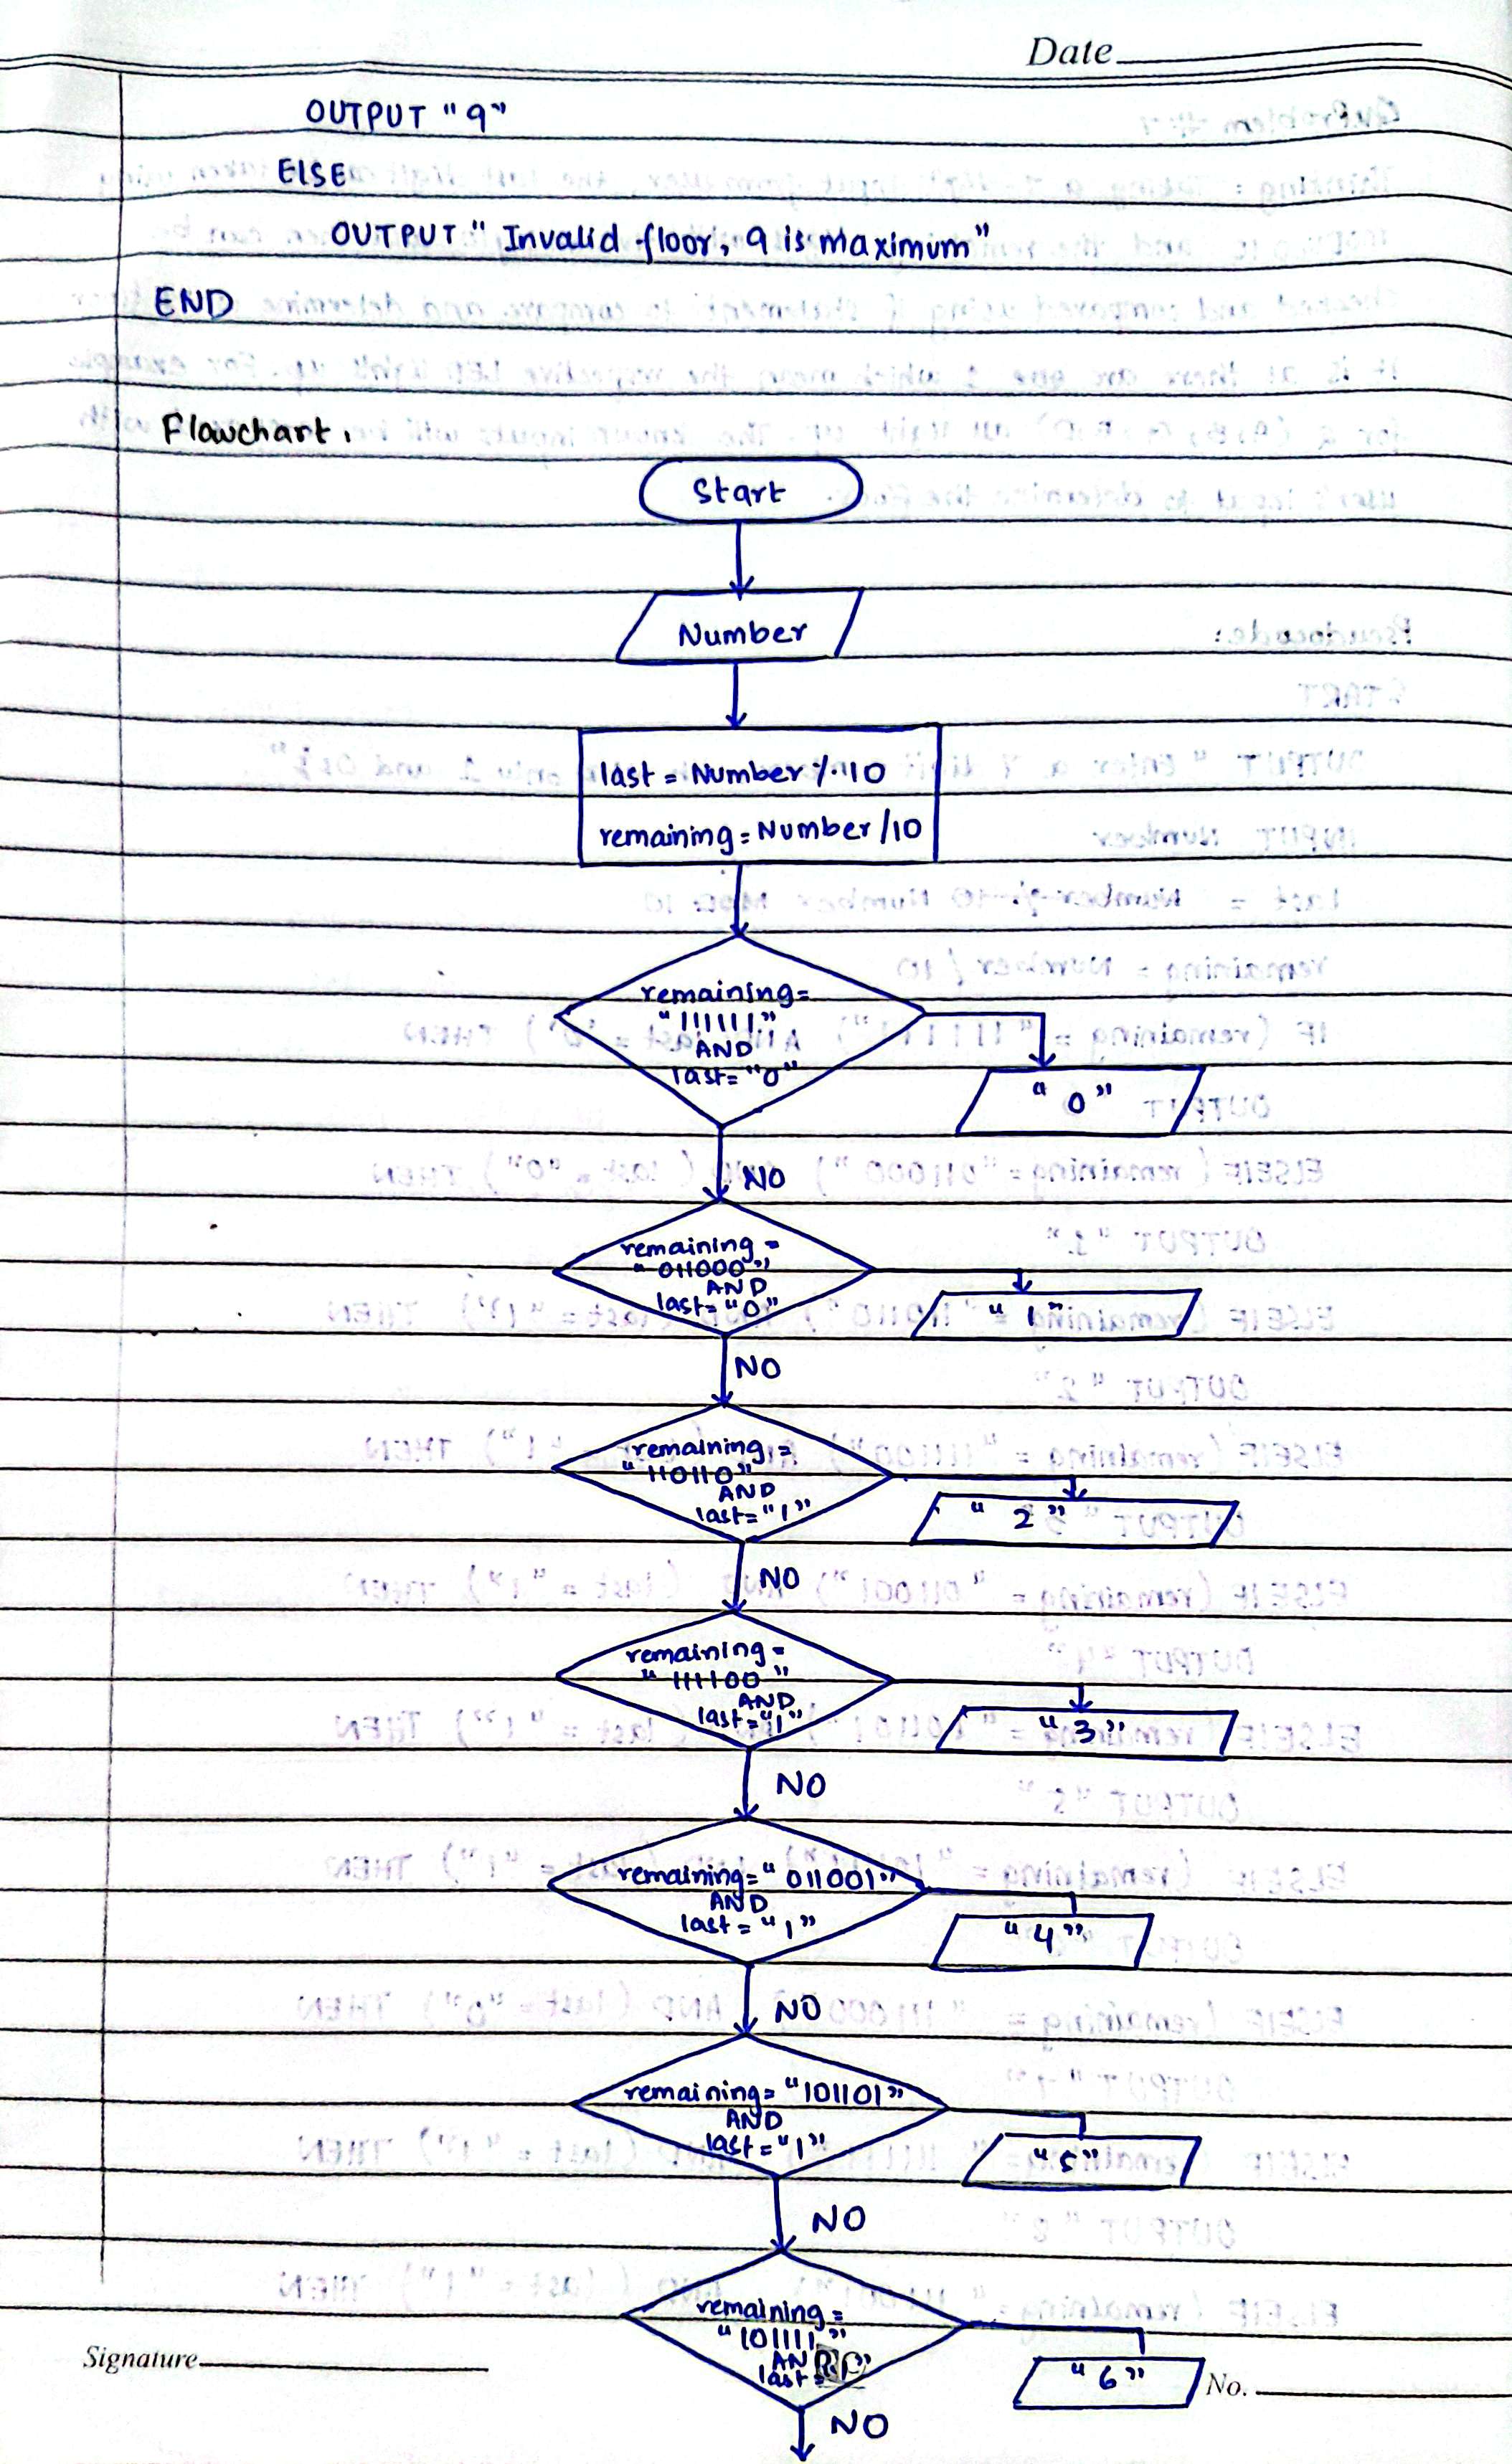 Date
OUTPUT "9"
ELSE
OUTPUT "Invalid floor, 9 is maximum"
END
Flowchart.
Start
Number
last = Number % 10
remaining = Number /10
remaining =
"111111"
AND
last = "0"
"0"
NO
remaining =
"011000"
AND
last = "0"
"1"
NO
remaining =
"110110"
AND
last = "1"
"2"
NO
remaining =
"111100"
AND
last = "1"
"3"
NO
remaining = "011001"
AND
last = "1"
"4"
NO
remaining = "101101"
AND
last = "1"
"5"
NO
remaining =
"101111"
AND
last =
"6"
NO
Signature
No.